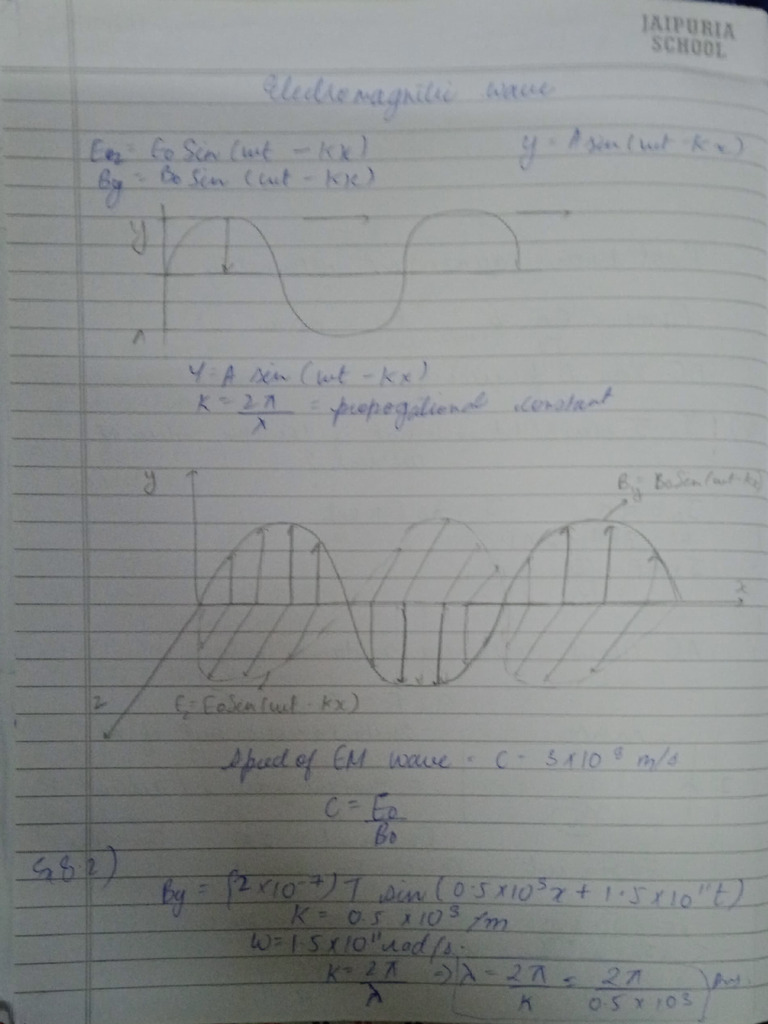 JAIPURIA
SCHOOL
Electromagnetic wave
Ez = E0 Sin (wt - kx)
y = A sin (wt - kx)
By = B0 Sin (wt - kx)
y
A
Y = A sin (wt - kx)
K = 2π/λ = propegational constant
y
By = B0 Sin (wt - kx)
x
z
Ez = E0 Sin (wt - kx)
Speed of EM wave = C = 3×10^8 m/s
C = E0/B0
8.2)
By = (2×10^-7) T sin (0.5×10^3x + 1.5×10^11t)
K = 0.5 ×10^3 /m
W = 1.5×10^11 rad/s.
K = 2π/λ → λ = 2π/K = 2π/0.5 × 10^3